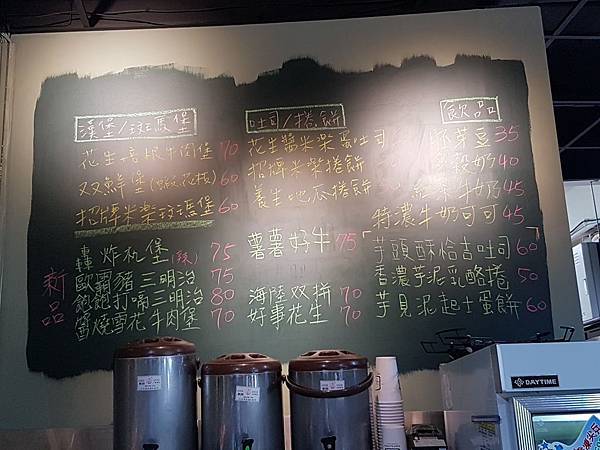 漢堡/斑馬堡
花生培根牛肉堡 70
双鮮堡(蝦/花枝) 60
招牌米樂斑馬堡 60
新品
轟炸机堡(辣) 75
歐霸豬三明治 75
飽飽打嗝三明治 80
醬燒雪花牛肉堡 70
吐司/捲餅
花生醬米樂蛋吐司
招牌米樂捲餅
養生地瓜捲餅
薯薯好牛 75
海陸双拼 70
好事花生 70
飲品
胚芽豆 35
穀奶 40
紅茶牛奶 45
特濃牛奶可可 45
芋頭酥恰吉吐司 60
香濃芋泥乳酪捲 50
芋見泥起士蛋餅 60
DAYTIME